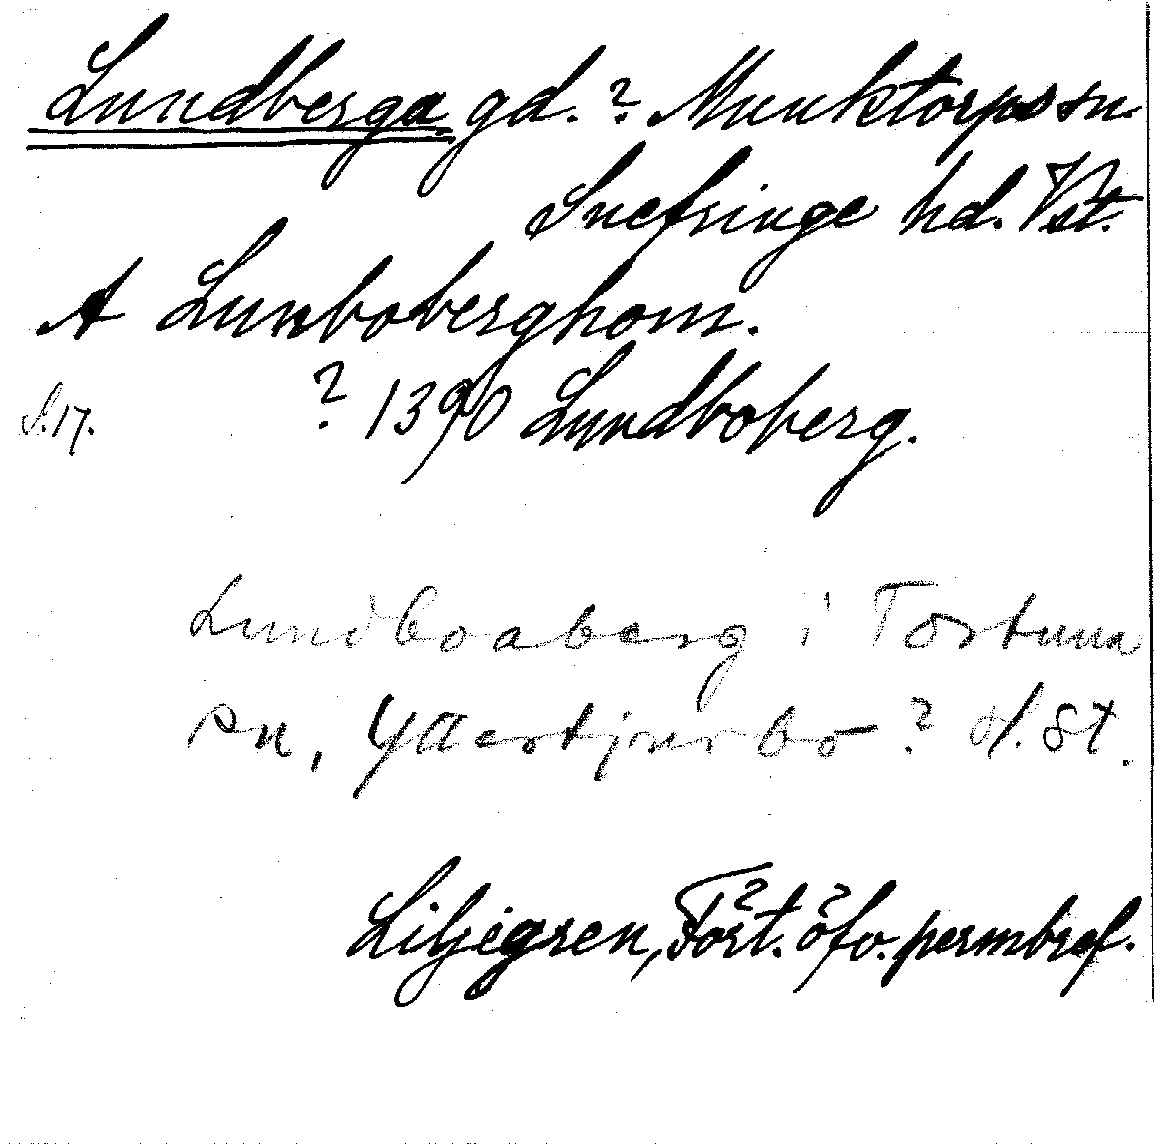 Lundberga gd. ? Munktorps sn.
Snefringe hd. Vst.
A Lunboberghom.
S. 17. ? 1390 Lundboberg.
Lundboaberg i Tortuna
sn, Yttertjurbo ? H. St.
Liljegren, Fört. öfv. permbref.